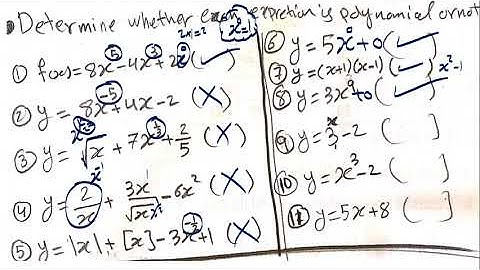 Determine whether each expretion is polynomial or not
2x1=2 x⁰=1
① f(x)=8x⁵-4x³+2x⁰ (✓)
② y = 8x⁻⁵+4x-2 (X)
③ y = √x + 7x^(1/3) + 2/5 (X)
④ y = 2/x + 3x/√x - 6x² (X)
⑤ y = |x| + [x] - 3x^(-1/2)+1 (X)
⑥ y = 5x⁰+0 (✓)
⑦ y = (x+1)(x-1) (✓) x²-1
⑧ y = 3x⁹+0 (✓)
⑨ y = 3ˣ-2 ( )
⑩ y = x³-2 ( )
⑪ y = 5x+8 ( )